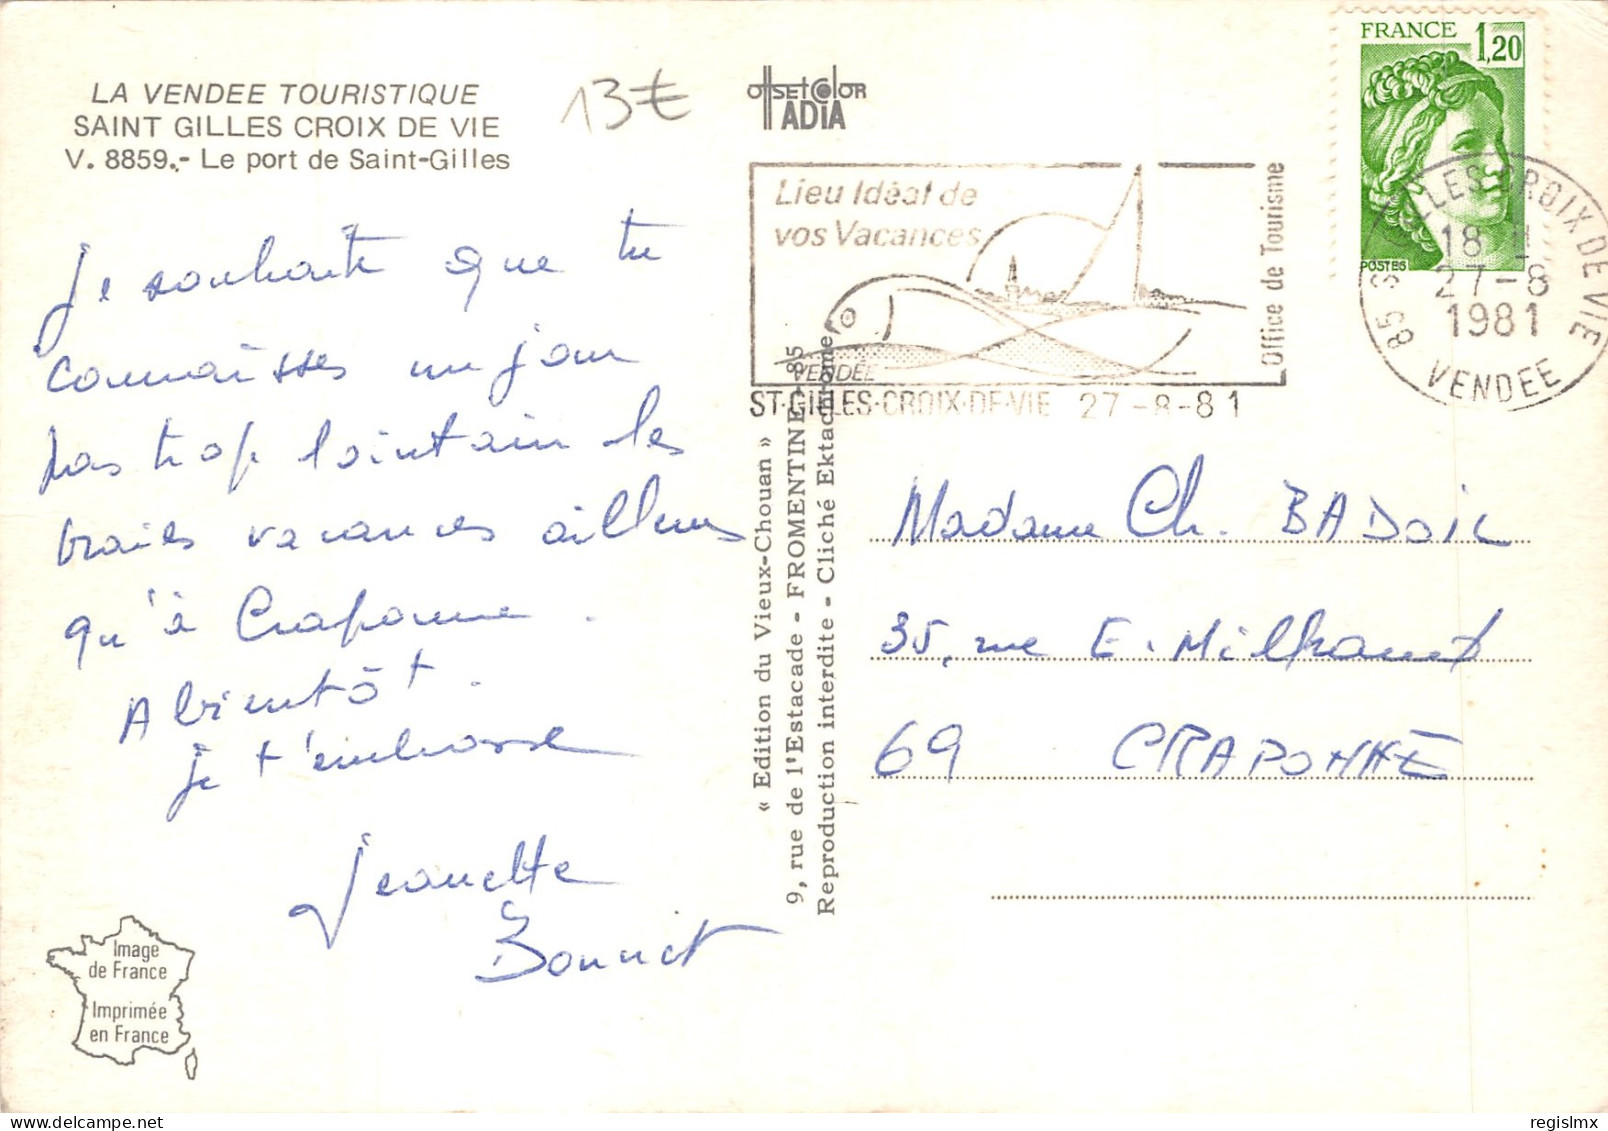 LA VENDEE TOURISTIQUE
SAINT GILLES CROIX DE VIE
V. 8859.- Le port de Saint-Gilles
13€
je souhaite que tu
connaisses un jour
pas trop lointain les
vraies vacances ailleurs
qu'à Craponne.
A bientôt.
je t'embrasse
Jeannette
Bonnet
Image
de France
Imprimée
en France
OffsetColor
ADIA
Lieu Idéal de
vos Vacances
Office de Tourisme
VENDÉE
ST-GILLES-CROIX-DE-VIE 27-8-81
« Edition du Vieux-Chouan »
9, rue de l'Estacade - FROMENTINE - 85
Reproduction interdite - Cliché Ektachrome
FRANCE 1,20
POSTES
85 ST GILLES CROIX DE VIE
18 H
27-8
1981
VENDEE
Madame Ch. BADOIL
35, rue E. Milhaud
69 CRAPONNE
regislmx